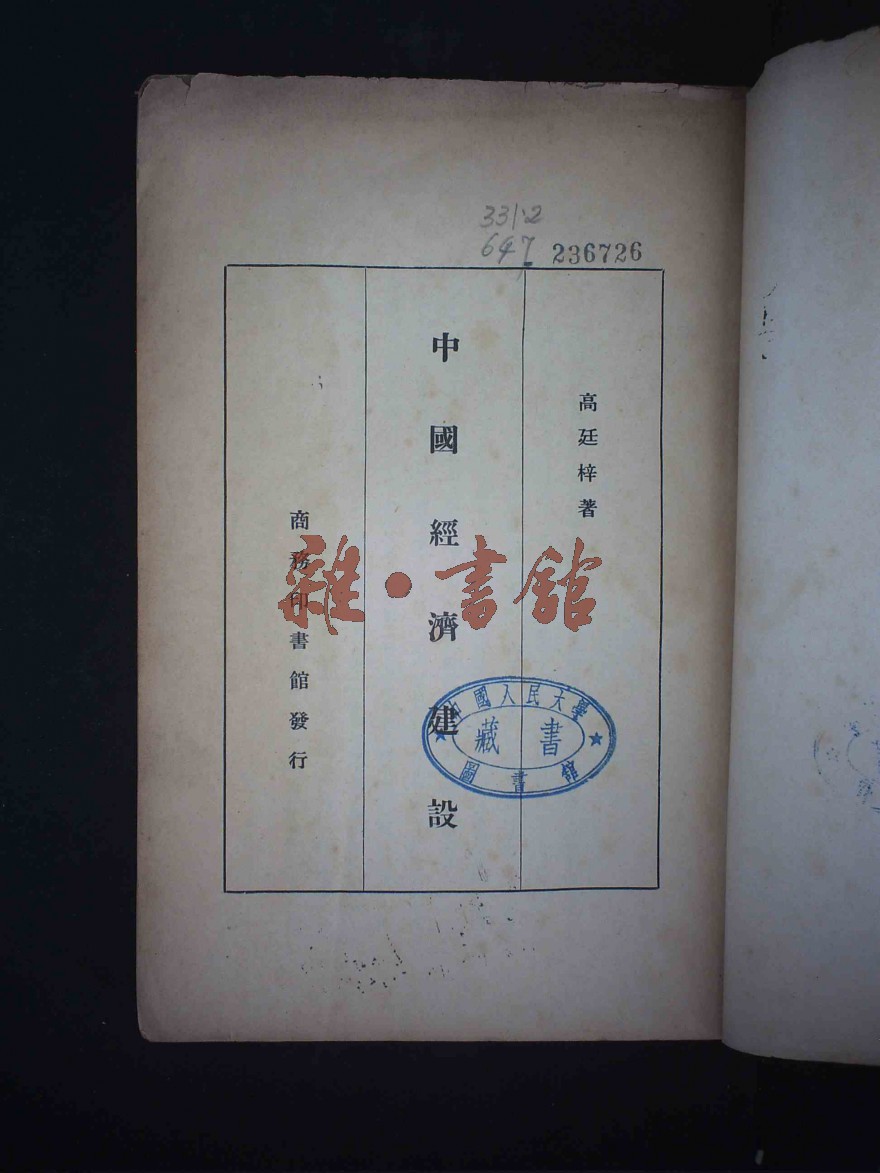 331.2
647
236726
高廷梓著
中國經濟建設
商務印書館發行
雜·書館
中國人民大學
藏書
圖書館